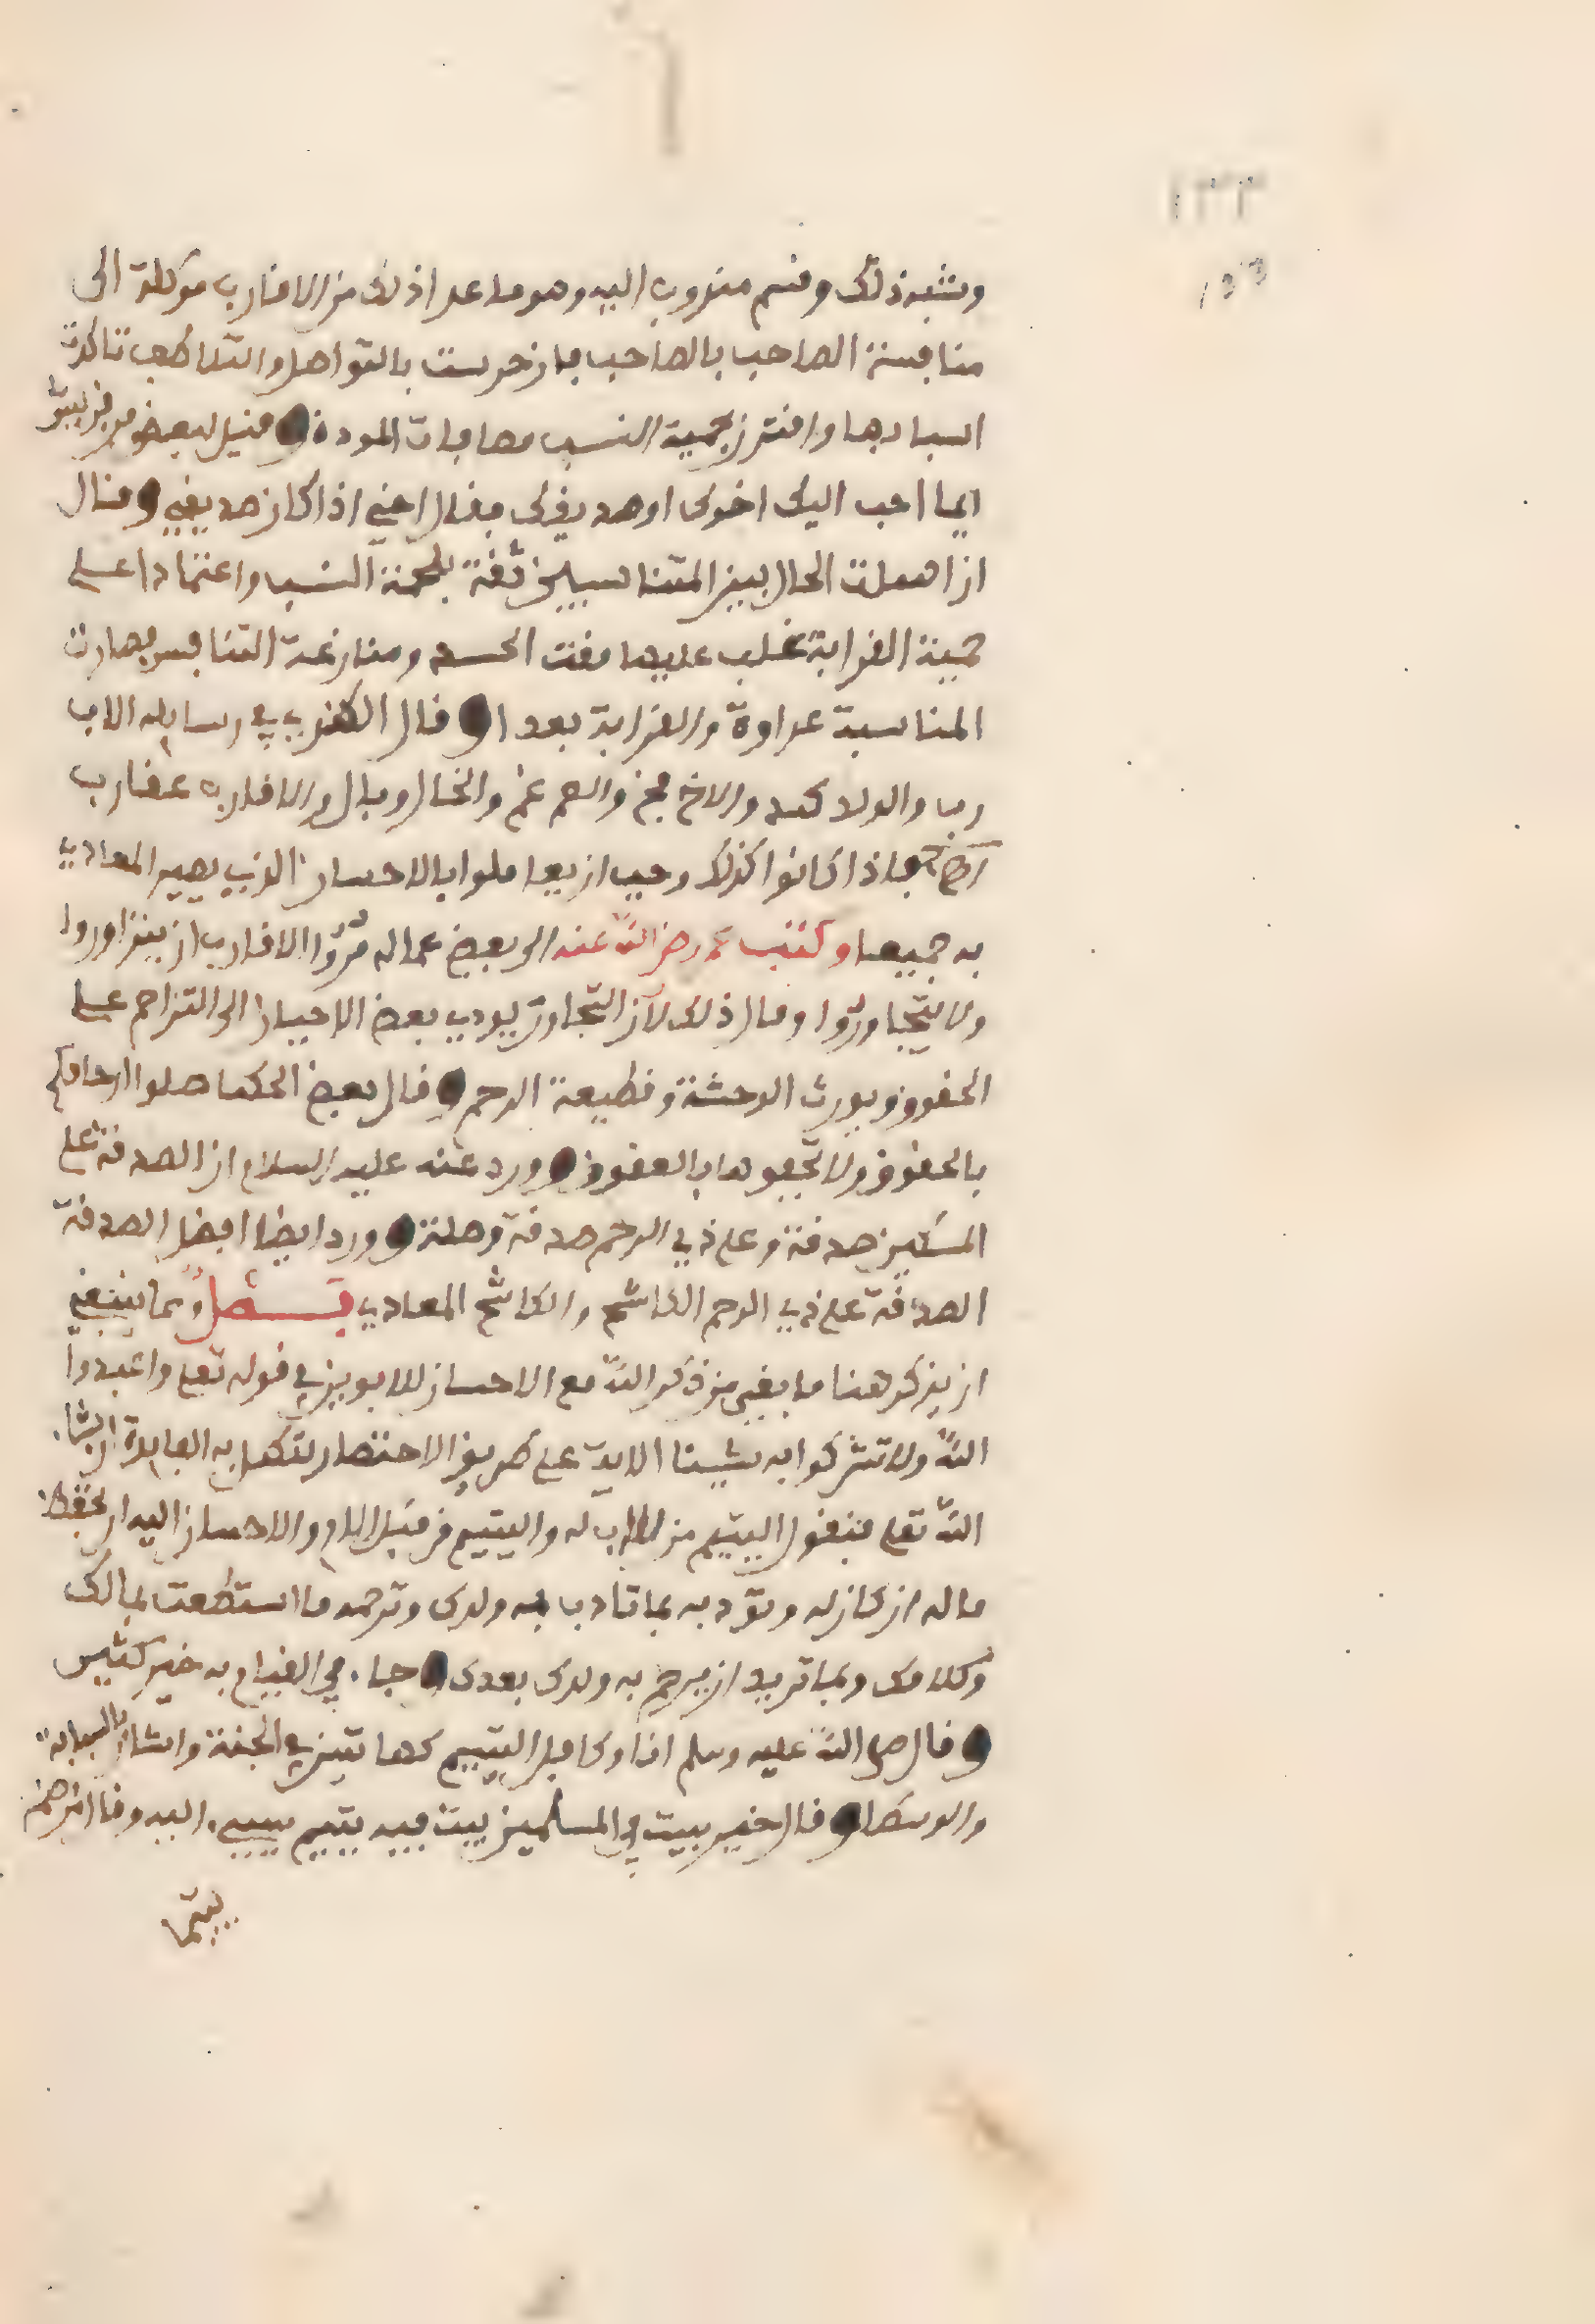 ١٣٣
133
وشبه ذلك وقسم مندوب اليه وهو ما عدا ذلك من الاقارب موكلة الى
منافسة الصاحب بالصاحب فان حرست بالتواصل والتلاطف تاكدت
اسبابها واقترن بحمية النسب مصافات المودة وقيل لبعض قريش
ايما احب اليك اخوك او صديقك فقال اخي اذا كان صديقي وقال
ان اهملت الحال بين المتناسبين ثقة بلحمة النسب واعتمادا على
حمية القرابة غلب عليها مقت الحسد ومنازعة التنافس فصارت
المناسبة عداوة والقرابة بعدا وقال الكندي في رسايله الاب
رب والولد كمد والاخ فخ والعم غم والخال وبال والاقارب عقارب
فاذا كانوا كذلك وجب ان يعاملوا بالاحسان الذي يصير المعادي
به حميما وكتب عمر رضي الله عنه الى بعض عماله مروا الاقارب ان يتزاوروا
ولا يتجاوروا وقال ذلك لان التجاور يودي بعض الاحيان الى التزاحم على
الحقوق ويورث الوحشة وقطيعة الرحم وقال بعض الحكما صلوا ارحامكم
بالحقوق ولا تجفوها بالعقوق وورد عنه عليه السلام ان الصدقة على
المسكين صدقة وعلى ذي الرحم صدقة وصلة وورد ايضا افضل الصدقة
الصدقة على ذي الرحم الكاشح والكاشح المعادي فصل ومما ينبغي
ان يذكر هنا ما بقي من ذكر الله مع الاحسان للابوين في قوله تعلى واعبدوا
الله ولا تشركوا به شيئا الاية على طريق الاختصار لتكمل به الفايدة ان شا
الله تعلى فنقول اليتيم من لا اب له واليتيم من قبل الام والاحسان اليه ان تحفظ
ماله ان كان له وتودبه بما تادب به ولدك وترحمه ما استطعت بمالك
وكلامك وبما تريد ان يرحم به ولدك بعدك وجا في القيام به خير كثير
وقال صلى الله عليه وسلم انا وكافل اليتيم كهاتين في الجنة واشار بالسبابة
والوسطى وقال خير بيت في المسلمين بيت فيه يتيم يحسن اليه وقال من ضم
يتيما